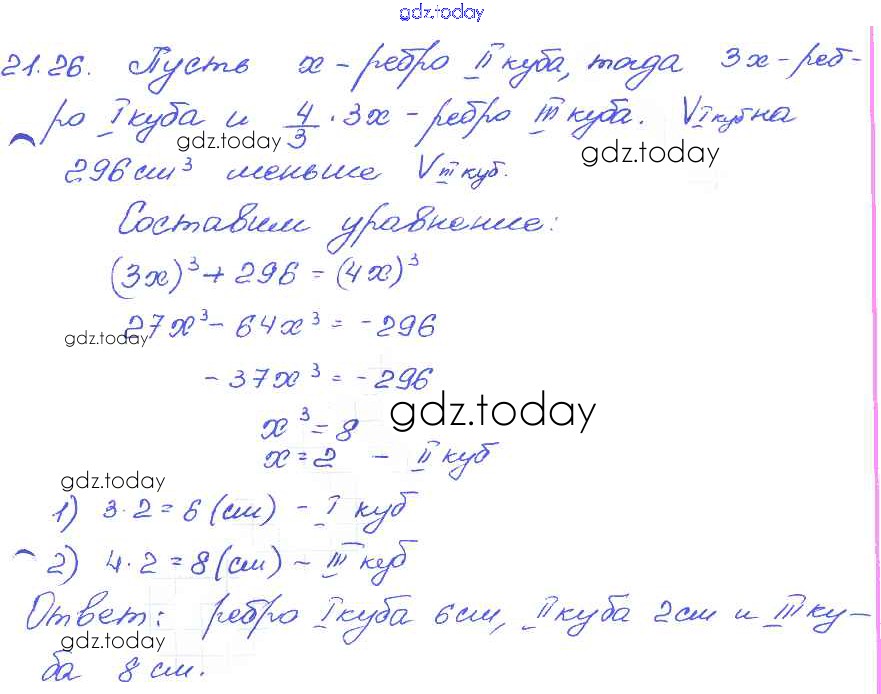 gdz.today
21.26. Пусть x – ребро II куба, тогда 3x – реб-
ро I куба и 4/3 · 3x – ребро III куба. V I куб на
gdz.today gdz.today
296 см³ меньше V III куб.
Составим уравнение:
(3x)³ + 296 = (4x)³
27x³ – 64x³ = –296
gdz.today
– 37x³ = –296
gdz.today
x³ = 8
x = 2 – II куб
gdz.today
1) 3·2 = 6 (см) – I куб
2) 4·2 = 8 (см) – III куб
Ответ: ребро I куба 6 см, II куба 2 см и III ку-
gdz.today
ба 8 см.